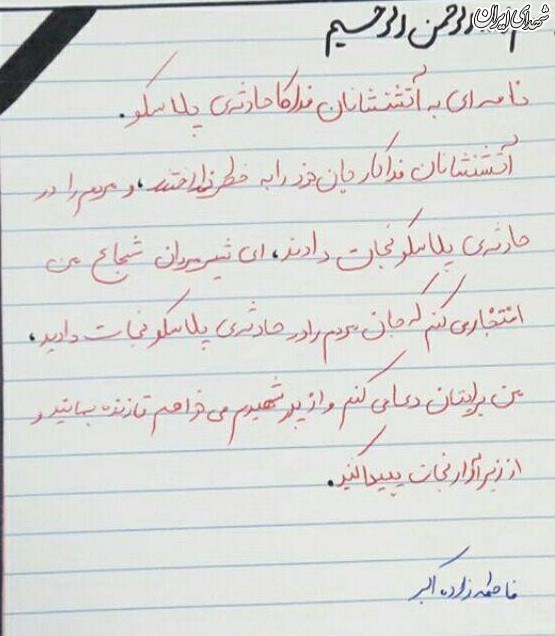 شهدای ایران
الرحمن الرحیم
نامه‌ای به آتشنشانان فداکار حادثه‌ی پلاسکو.
آتشنشانان فداکار جان خود را به خطر انداختند، و مردم را در
حادثه‌ی پلاسکو نجات دادند، ای شیرمردان شجاع من
افتخار می‌کنم که جان مردم را در حادثه‌ی پلاسکو نجات دادید،
من برایتان دعا می‌کنم و از پدر شهیدم می‌خواهم تا زنده بمانید و
از زیر آوار نجات پیدا کنید.
فاطمه زاده اکبر